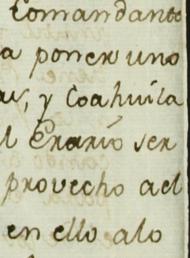 Comandante
a poner uno
as, y Coahuila
l Erario ser
provecho del
en ello alo